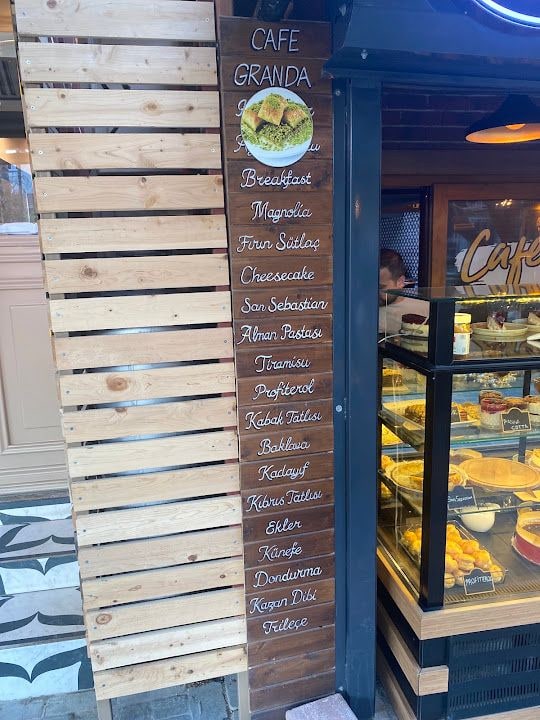 CAFE
GRANDA
Breakfast
Magnolia
Fırın Sütlaç
Cheesecake
San Sebastian
Alman Pastası
Tiramisu
Profiterol
Kabak Tatlısı
Baklava
Kadayıf
Kıbrıs Tatlısı
Ekler
Künefe
Dondurma
Kazan Dibi
Trileçe
Cafe
PROFITEROL